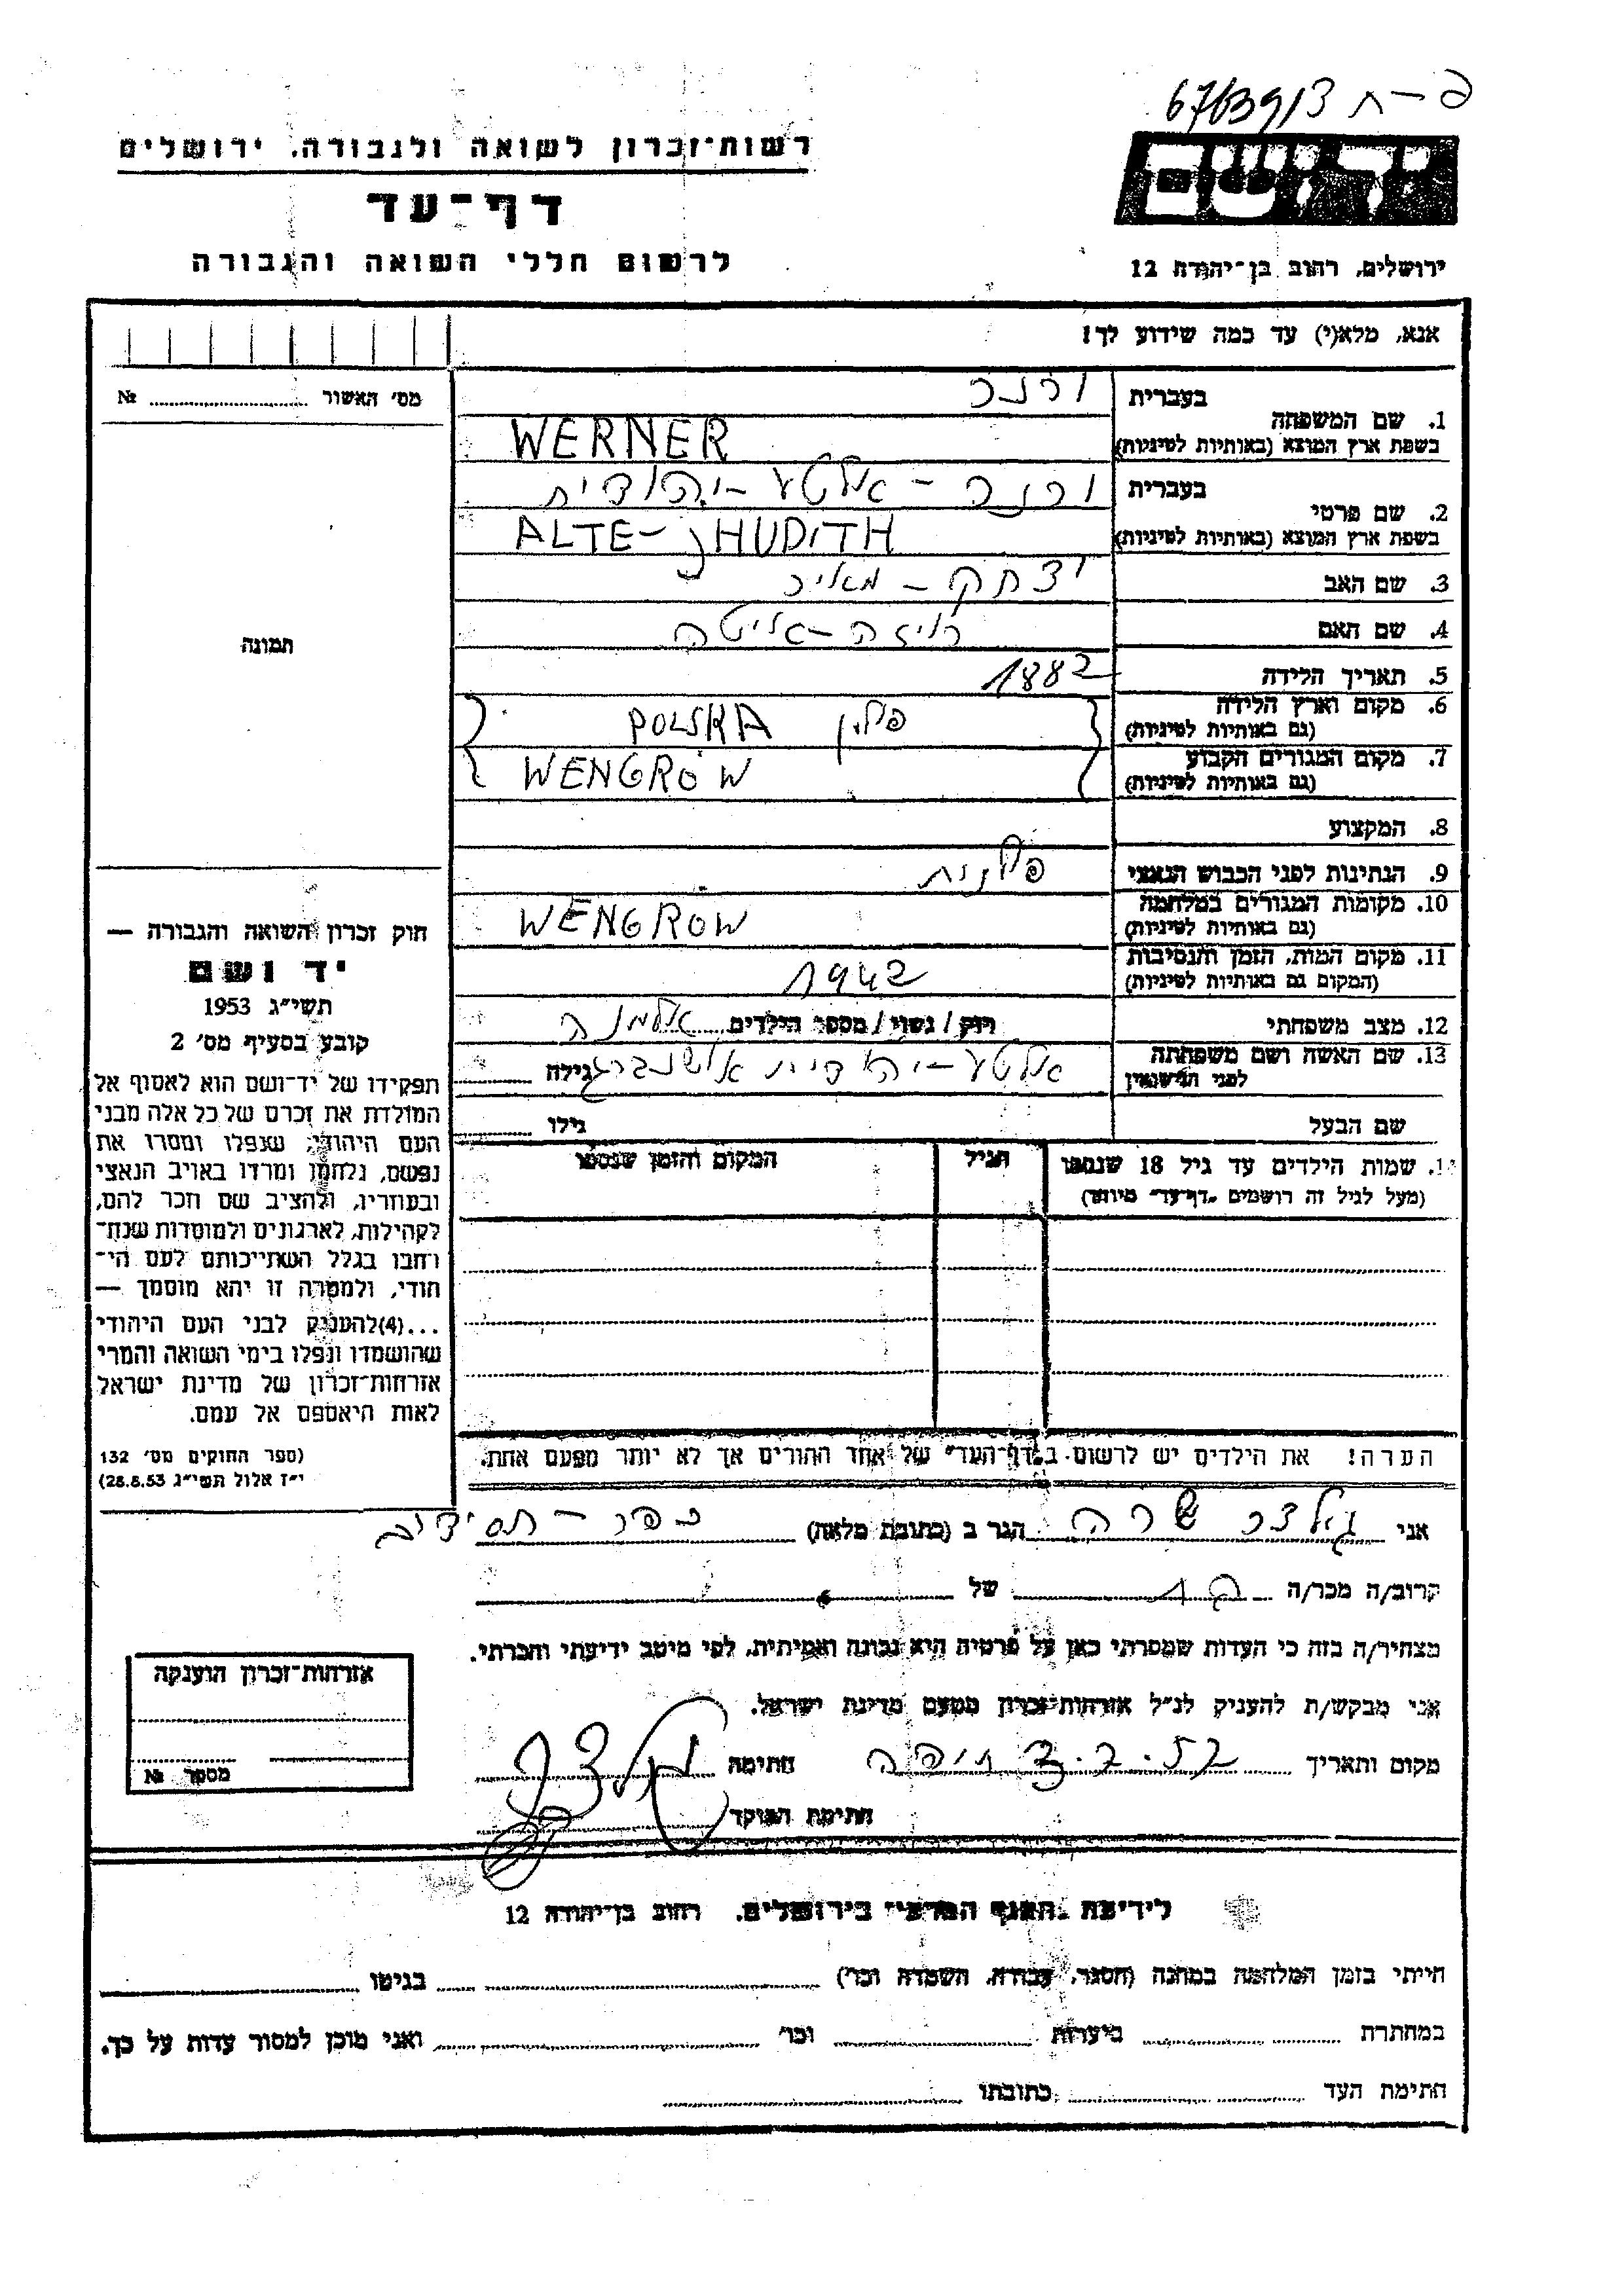 פ-ח 67/63913
יד ושם
ירושלים, רחוב בן-יהודה 12
רשות-זכרון לשואה ולגבורה, ירושלים
דף-עד
לרשום חללי השואה והגבורה
אנא, מלא(י) עד כמה שידוע לך!
מס׳ האשור № 
1. שם המשפחה
בעברית ורנר
בשפת ארץ המוצא (באותיות לטיניות) WERNER
2. שם פרטי
בעברית ורנר - אלטע - יהודית
בשפת ארץ המוצא (באותיות לטיניות) ALTE - JHUDITH
3. שם האב יצחק - מאיר
4. שם האם
5. תאריך הלידה 1882
6. מקום וארץ הלידה פולין POLSKA
(גם באותיות לטיניות)
7. מקום המגורים הקבוע WENGRÓW
(גם באותיות לטיניות)
8. המקצוע
9. הנתינות לפני הכבוש הנאצי פולנית
10. מקומות המגורים במלחמה WENGRÓW
(גם באותיות לטיניות)
11. מקום המות, הזמן והנסיבות 1942
(המקום גם באותיות לטיניות)
12. מצב משפחתי רווק / נשוי / מספר הילדים אלמנה
13. שם האשה ושם משפחתה אלטע - יהודית גילה
לפני הנישואין
שם הבעל גילו
שמות הילדים עד גיל 18 שנספו הגיל המקום והזמן שנספו
(מעל לגיל זה רושמים "דף-עד" מיוחד)
הערה! את הילדים יש לרשום ב"דף-העד" של אחד ההורים אך לא יותר מפעם אחת.
תמונה
חוק זכרון השואה והגבורה —
יד ושם
תשי"ג 1953
קובע בסעיף מס׳ 2
תפקידו של יד-ושם הוא לאסוף אל
המולדת את זכרם של כל אלה מבני
העם היהודי, שנפלו ומסרו את
נפשם, נלחמו ומרדו באויב הנאצי
ובעוזריו, ולהציב שם וזכר להם,
לקהילות, לארגונים ולמוסדות שנח־
רבו בגלל השתייכותם לעם הי־
הודי, ולמטרה זו יהא מוסמך —
...(4) להעניק לבני העם היהודי
שהושמדו ונפלו בימי השואה והמרי
אזרחות-זכרון של מדינת ישראל
לאות היאספם אל עמם.
(ספר החוקים מס׳ 132
י"ז אלול תשי"ג 28.8.53)
אני גולצר שרה הגר ב (כתובת מלאה) כפר - חסידים
קרוב/ה מכר/ה של
מצהיר/ה בזה כי העדות שמסרתי כאן על פרטיה היא נכונה ואמיתית, לפי מיטב ידיעתי והכרתי.
אני מבקש/ת להעניק לנ"ל אזרחות-זכרון מטעם מדינת ישראל.
מקום ותאריך חיפה 3.2.57 חתימה
חתימת הפוקד
אזרחות-זכרון הוענקה
מספר №
לידיעת הענף המרכזי בירושלים, רחוב בן-יהודה 12
הייתי בזמן המלחמה במחנה (הסגר, עבודה, השמדה וכו׳) בגיטו
במחתרת ביערות וכו׳ ואני מוכן למסור עדות על כך.
חתימת העד כתובתו